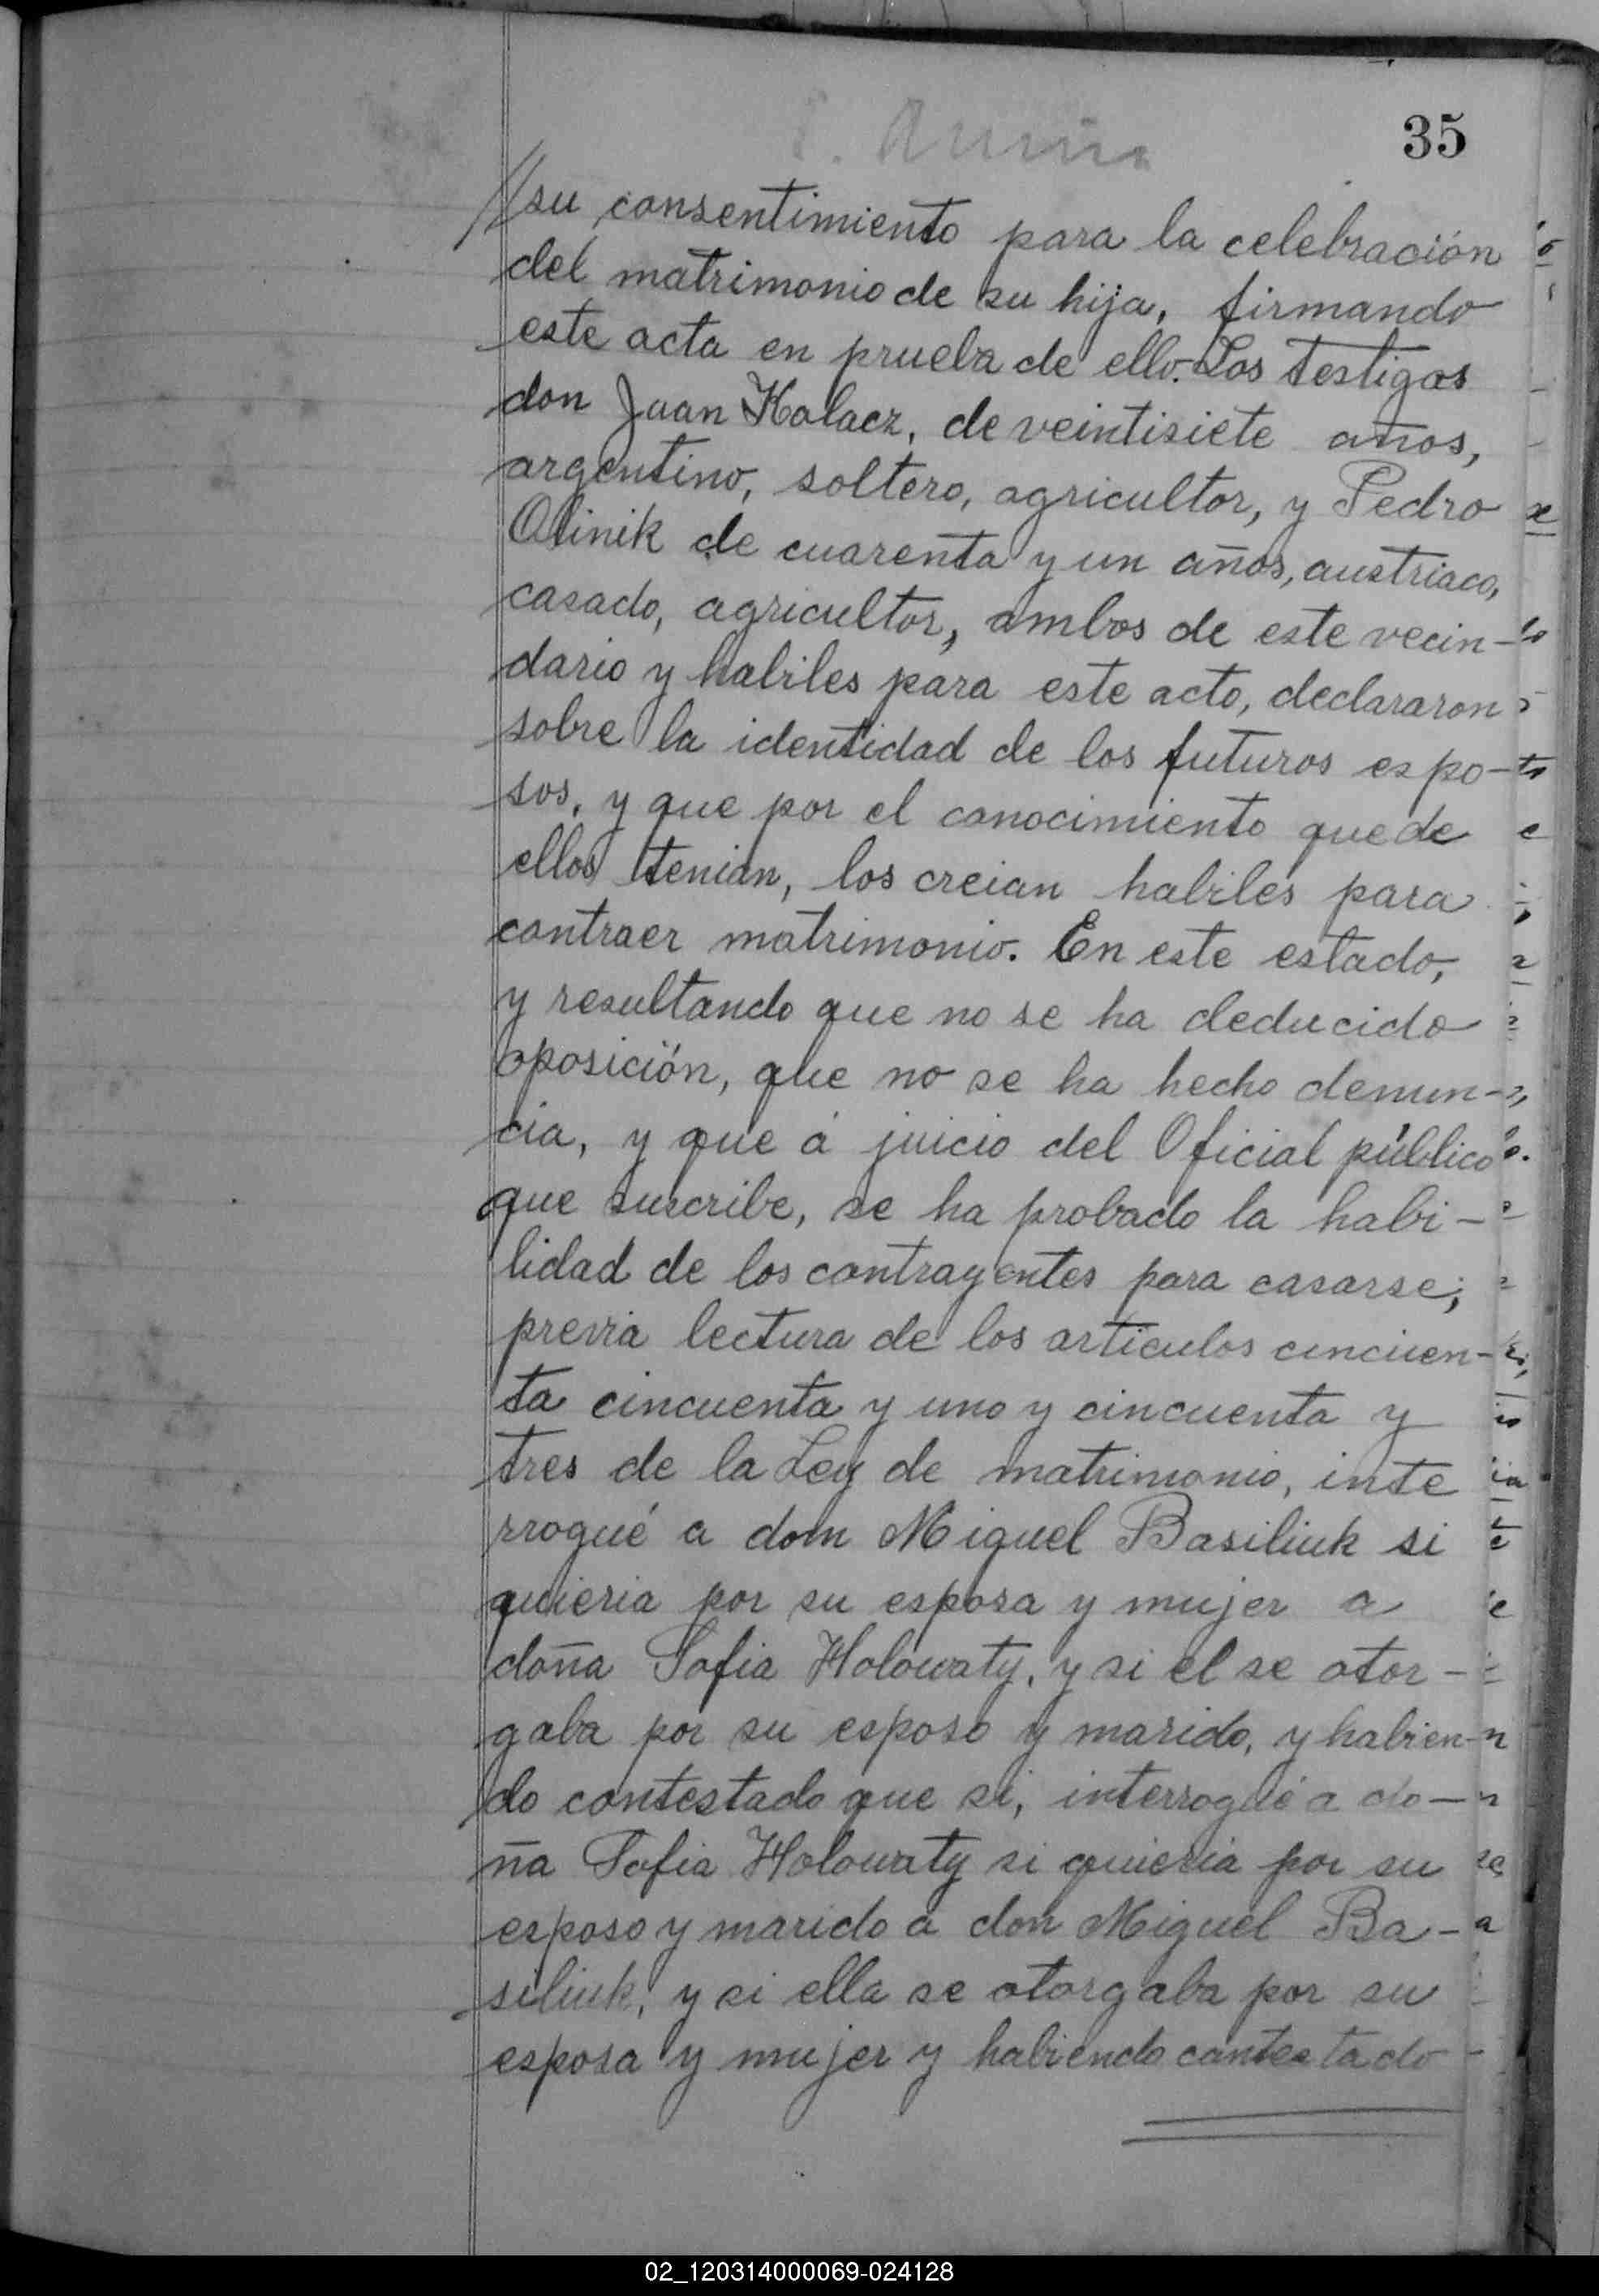 35
//su consentimiento para la celebración
del matrimonio de su hija, firmando
este acta en prueba de ello. Los testigos
don Juan Kolacz, de veintisiete años,
argentino, soltero, agricultor, y Pedro
Olinik de cuarenta y un años, austriaco,
casado, agricultor, ambos de este vecin-
dario y habiles para este acto, declararon
sobre la identidad de los futuros espo-
sos, y que por el conocimiento que de
ellos tenian, los creian habiles para
contraer matrimonio. En este estado,
y resultando que no se ha deducido
oposición, que no se ha hecho denun-
cia, y que á juicio del Oficial público
que suscribe, se ha probado la habi-
lidad de los contrayentes para casarse;
previa lectura de los articulos cincuen-
ta cincuenta y uno y cincuenta y
tres de la Ley de matrimonio, inte
rrogué a don Miguel Basiliuk si
quieria por su esposa y mujer a
doña Sofia Holowaty, y si el se otor-
gaba por su esposo y marido, y habien-
do contestado que si, interrogué a do-
ña Sofia Holowaty si quieria por su
esposo y marido a don Miguel Ba-
siliuk, y si ella se otorgaba por su
esposa y mujer y habiendo contestado
02_120314000069-024128